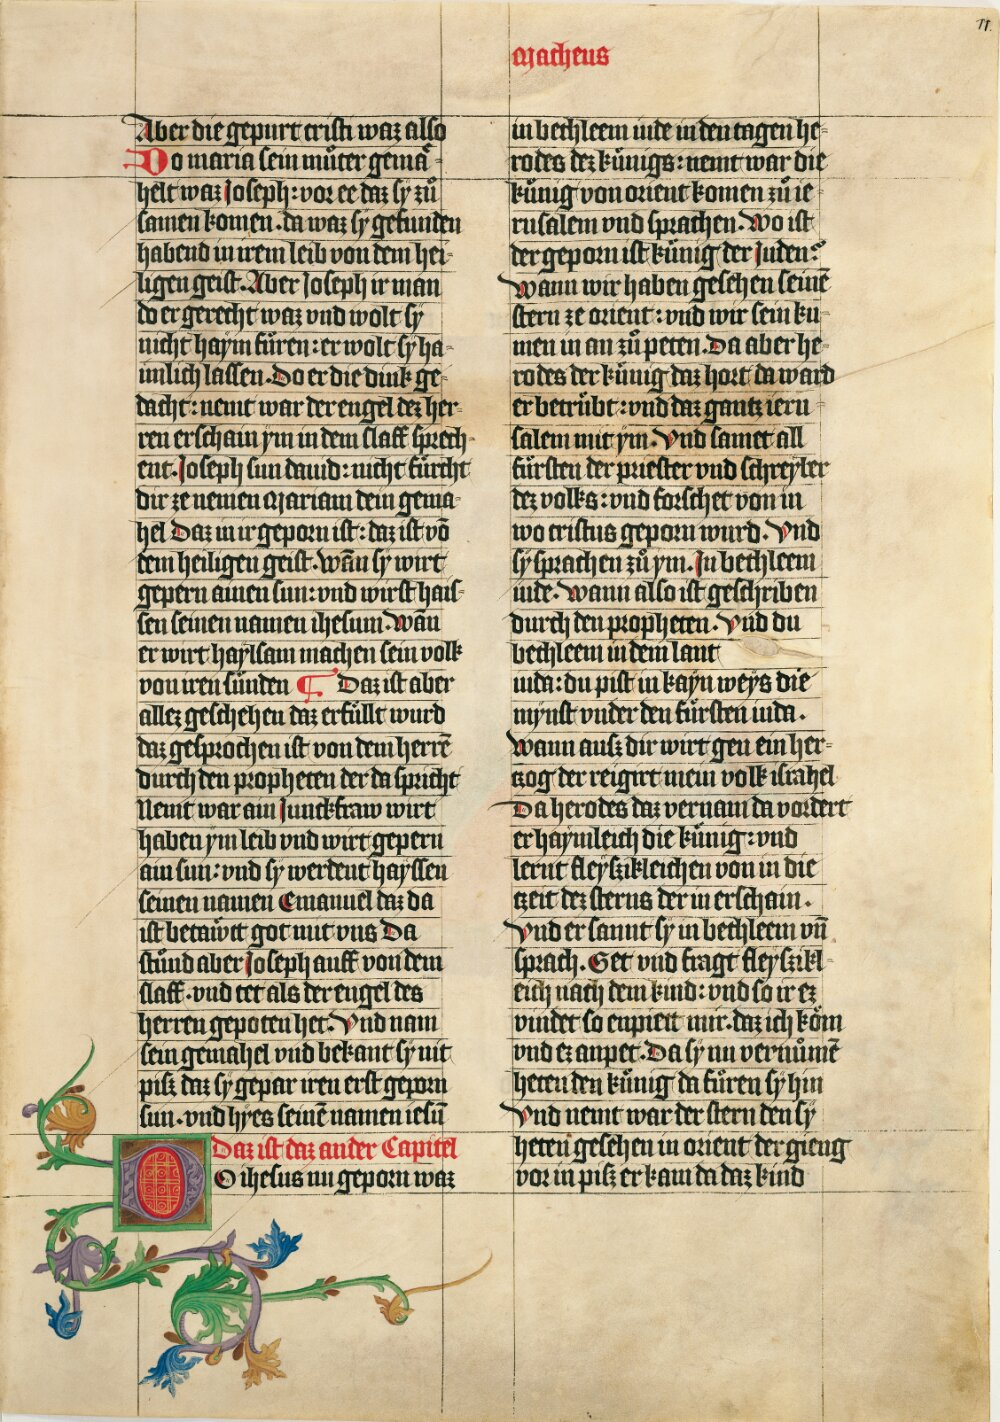 11.
Matheus
Aber die gepurt cristi waz also
Do maria sein můter gemä-
helt waz Joseph: vor ee daz sÿ zů
samen komen. da waz sÿ gefunden
habend in irem leib von dem hei-
ligen geist. Aber Joseph ir man
do er gerecht waz vnd wolt sÿ
nicht haÿm fůren: er wolt sÿ ha-
imlich lassen. Do er die dink ge-
dacht: nemt war der engel dez her-
ren erschain ÿm in dem slaff sprech-
ent. Joseph sun dauid: nicht fürcht
dir ze nemen Mariam dein gema-
hel Daz in ir geporn ist: daz ist vō
dem heiligen geist. Wañ sÿ wirt
gepern ainen sun: vnd wirst hais-
sen seinen namen ihesum. Wañ
er wirt haÿlsam machen sein volk
von iren sünden ¶ Daz ist aber
allez geschehen daz erfüllt wurd
daz gesprochen ist von dem herrē
durch den propheten der da spricht
Nemt war ain Junckfraw wirt
haben ÿm leib vnd wirt gepern
ain sun: vnd sÿ werdent haÿssen
seinen namen Emanuel daz da
ist betaẅtt got mit vns Da
stůnd aber Joseph auff von dem
slaff. vnd tet als der engel des
herren gepoten het. Vnd nam
sein gemahel vnd bekant sÿ nit
pisz daz sÿ gepar iren erst geporn
sun. vnd hÿes seinē namen iesū
Daz ist daz ander Capitel
DO ihesus nu geporn waz
in bethleem iude in den tagen he-
rodes dez künigs: nemt war die
künig von orient komen zů ie-
rusalem vnd sprachen. Wo ist
der geporn ist künig der Juden?
Wann wir haben gesehen seinē
stern ze orient: vnd wir sein ku-
men in an zů peten. Da aber he-
rodes der künig daz hort da ward
er betrůbt: vnd daz gantz ieru
salem mit ÿm. Vnd samet all
fürsten der priester vnd schreÿber
dez volks: vnd forschet von in
wo cristus geporn wurd. Vnd
sÿ sprachen zů ÿm. In bethleem
iude. Wann also ist geschriben
durch den propheten. Vnd du
bethleem in dem lant
iuda: du pist in kaÿn weÿs die
mÿnst vnder den fürsten iuda.
Wann ausz dir wirt gen ein her-
tzog der reigirt mein volk israhel
Da herodes daz vernam da vordert
er haÿmleich die künig: vnd
lernt fleÿszikleichen von in die
tzeit dez sterns der in erschain.
Vnd er sannt sÿ in bethleem vñ
sprach. Get vnd fragt fleÿszikl-
eich nach dem kind: vnd so ir ez
vindet so enpiett mir. daz ich köm
vnd ez anpet. Da sÿ nu vernůmē
heten den künig da fůren sÿ hin
Vnd nemt war der stern den sÿ
heten gesehen in orient der gieng
vor in pisz er kam da daz kind